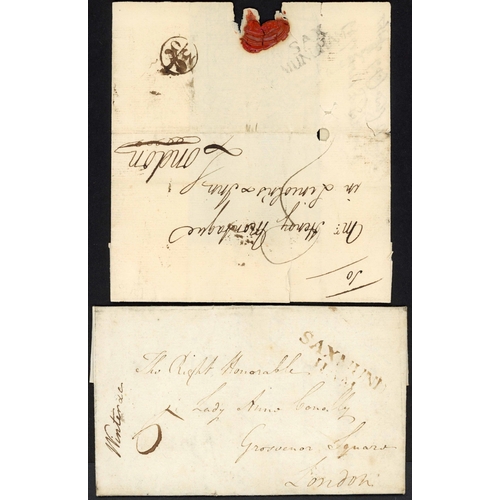 SAX
MUNDH
To
Mr. Henry Montague
in Lincoln's Inn
London
SAXMUND
HAM
The Right Honorable
Lady Anne Conolly
Grosvenor Square
London